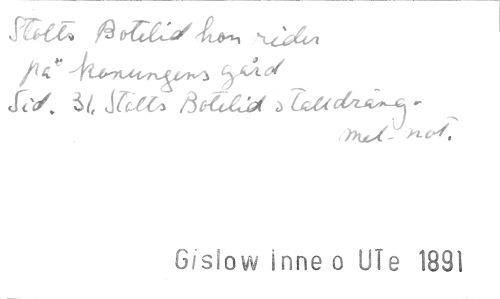 Stolts Botelid hon rider
på konungens gård
Sid. 31. Stolts Botelid stalldräng.
mel. not.
Gislow inne o UTe 1891